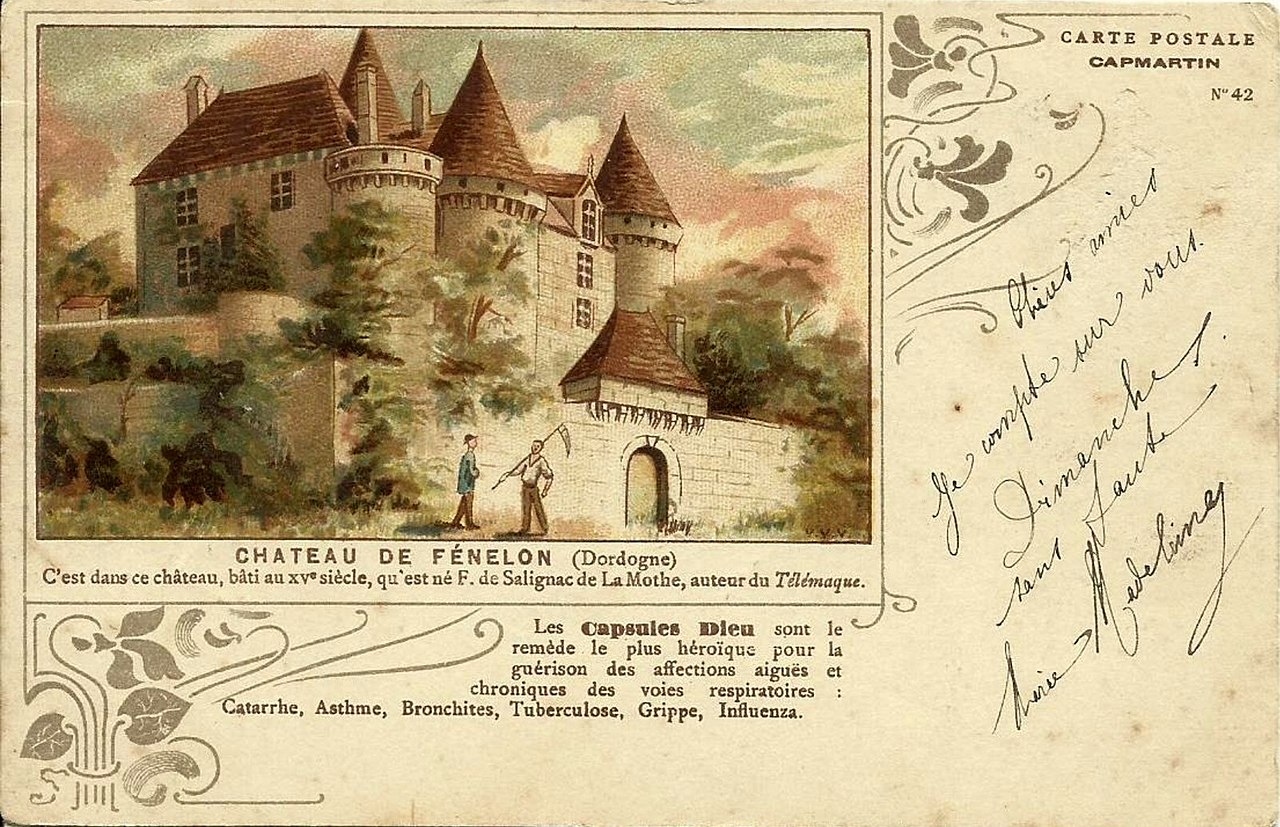 CARTE POSTALE
CAPMARTIN
N° 42
CHATEAU DE FÉNELON (Dordogne)
C'est dans ce château, bâti au XVe siècle, qu'est né F. de Salignac de La Mothe, auteur du Télémaque.
Les Capsules Dieu sont le
remède le plus héroïque pour la
guérison des affections aiguës et
chroniques des voies respiratoires :
Catarrhe, Asthme, Bronchites, Tuberculose, Grippe, Influenza.
Chères amies
Je compte sur vous.
Dimanche
sans faute